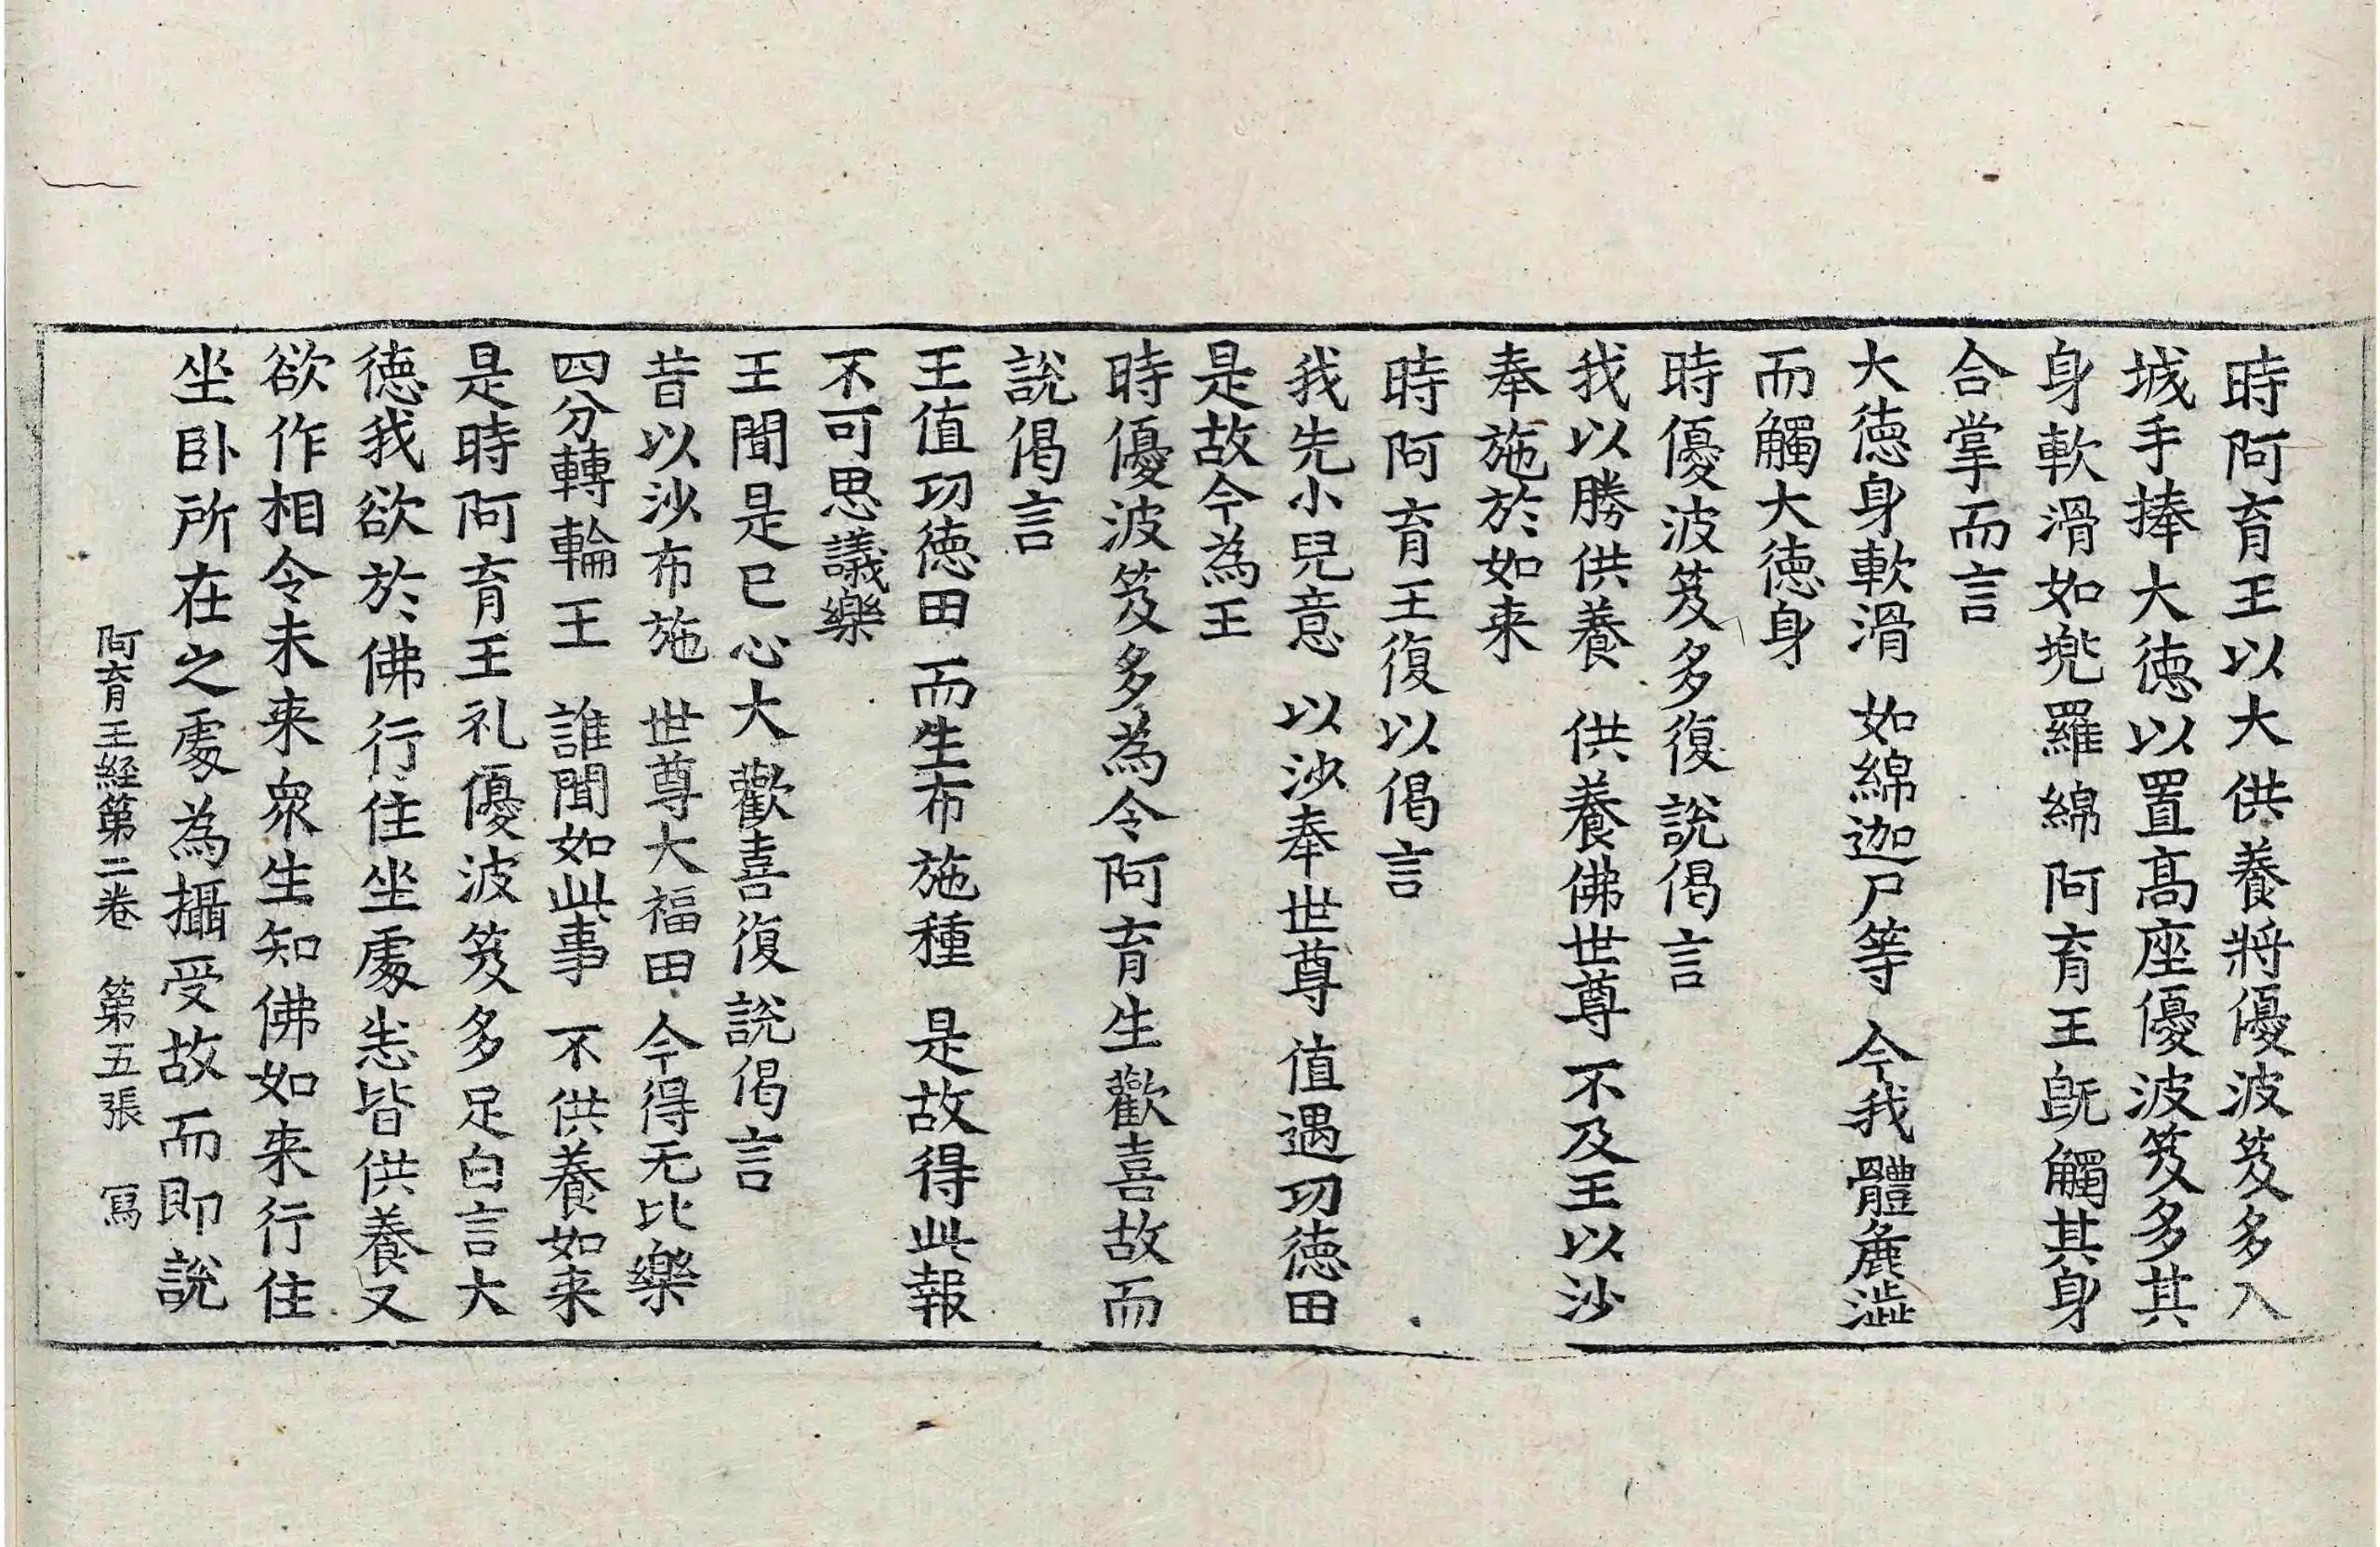 時阿育王以大供養將優波笈多入
城手捧大徳以置髙座優波笈多其
身軟滑如兠羅綿阿育王旣觸其身
合掌而言
大徳身軟滑　如綿迦尸等　今我體麁澁
而觸大徳身
時優波笈多復說偈言
我以勝供養　供養佛世尊　不及王以沙
奉施於如来
時阿育王復以偈言
我先小兒意　以沙奉世尊　值遇功徳田
是故今為王
時優波笈多為令阿育生歡喜故而
說偈言
王值功徳田　而生布施種　是故得此報
不可思議樂
王聞是已心大歡喜復說偈言
昔以沙布施　世尊大福田　今得无比樂
四分轉輪王　誰聞如此事　不供養如来
是時阿育王礼優波笈多足白言大
徳我欲於佛行住坐處悉皆供養又
欲作相令未来衆生知佛如来行住
坐卧所在之處為攝受故而即說
阿育王経第二卷　第五張　寫